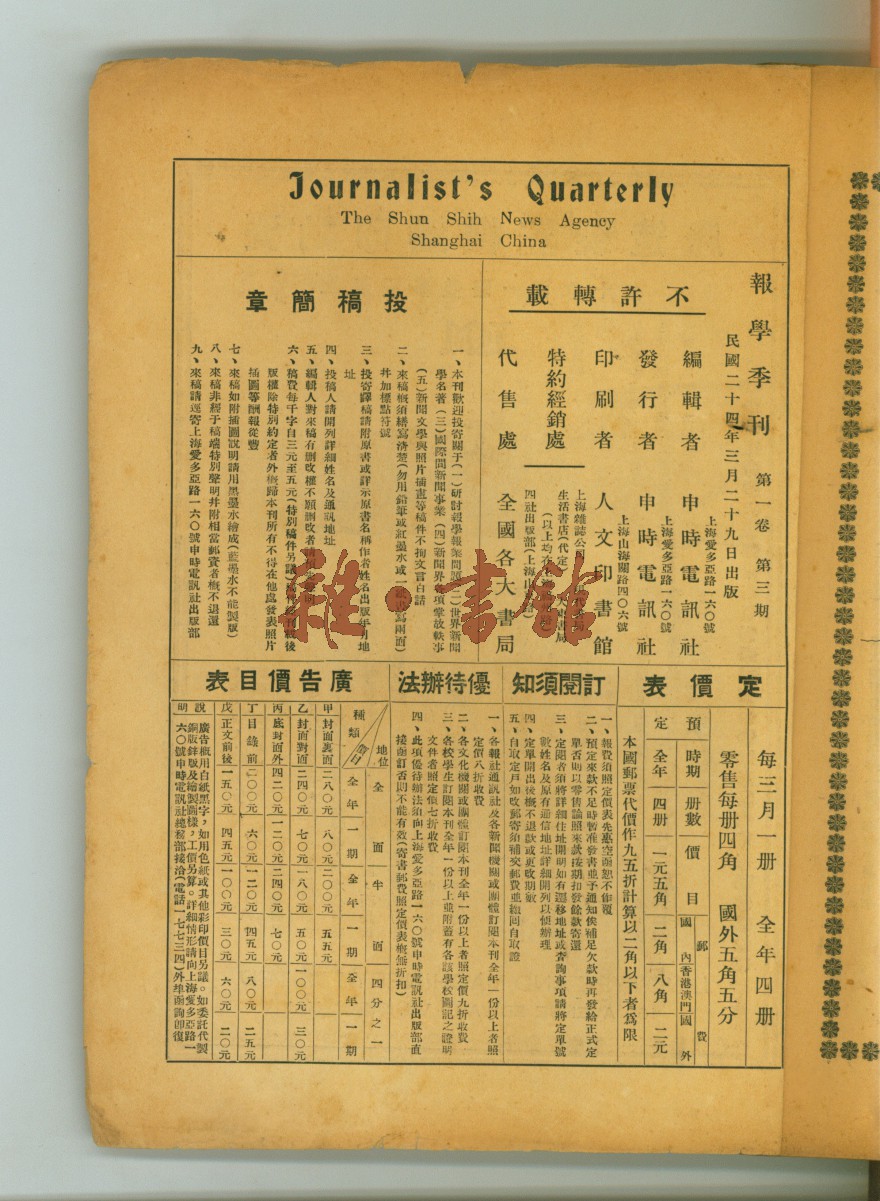 Journalist's Quarterly
The Shun Shih News Agency
Shanghai China
報學季刊 第一卷 第三期
民國二十四年三月二十九日出版
不許轉載
編輯者 申時電訊社
上海愛多亞路一六〇號
發行者 申時電訊社
上海愛多亞路一六〇號
印刷者 人文印書館
上海山海關路四〇六號
特約經銷處
上海雜誌公司
生活書店(代定)
四社出版部(上海山
代售處 全國各大書局
投稿簡章
一、本刊歡迎投寄關于(一)研討報學報業問題(二)世界新聞
學名著(三)國際間新聞事業(四)新聞界各項掌故軼事
(五)新聞文學與照片插畫等稿件不拘文言白話
二、來稿概須繕寫清楚(勿用鉛筆或紅墨水或一紙寫兩面)
幷加標點符號
三、投寄譯稿請附原書或詳示原書名稱作者姓名出版年月地
址
四、投稿人請開列詳細姓名及通訊地址
五、編輯人對來稿有刪改權不願刪改者請預先聲明
六、稿費每千字自三元至五元(特別稿件另議)稿件經刊載後
版權除特別約定者外概歸本刊所有不得在他處發表照片
插圖等酬報從豐
七、來稿如附插圖說明請用黑墨水繪成(藍墨水不能製版)
八、來稿非經于稿端特別聲明幷附相當郵資者概不退還
九、來稿請逕寄上海愛多亞路一六〇號申時電訊社出版部
定價表
每三月一册 全年四册
零售每册四角 國外五角五分
預定
時期 册數 價目 郵費
國內 香港澳門 國外
全年 四册 一元五角 二角 八角 二元
本國郵票代價作九五折計算以二角以下者爲限
訂閱須知
一、報費須照定價表先惠空函恕不作覆
二、預定來款不足時暫准發書並予通知俟補足欠款時再發給正式定
單否則以零售論照來款按期扣發餘款寄還
三、定閱者須將詳細住址開明如有遷移地址或查詢事項請將定單號
數姓名及原有通信地址詳細開列以便辦理
四、定單開出後概不退款或更改期數
五、自取定戶如改郵寄須補交郵費並繳回自取證
優待辦法
一、各報社通訊社及各新聞機關或團體訂閱本刊全年一份以上者照
定價八折收費
二、各文化機關或團體訂閱本刊全年一份以上者照定價九折收費
三、各校學生訂閱本刊全年一份以上並附蓋有各該學校圖記之證明
文件者照定價七折收費
四、此項優待辦法須向上海愛多亞路一六〇號申時電訊社出版部直
接函訂否則不能有效(寄書郵費照定價表概無折扣)
廣告價目表
地位 價目 種類
全面 半面 四分之一
全年 一期 全年 一期 全年 一期
甲 封面裏面 二八〇元 八〇元 二〇〇元 五五元
乙 封面對面 二四〇元 七〇元 一八〇元 五〇元 一〇〇元 三〇元
丙 底封面外 四二〇元 一二〇元 二四〇元 七〇元
丁 目錄前 二〇〇元 六〇元 一二〇元 四五元 八〇元 二五元
戊 正文前後 一五〇元 四五元 一〇〇元 三〇元 六〇元 二〇元
說明
廣告概用白紙黑字,如用色紙或其他彩印價目另議。如委託代製
銅版鋅版及繪製圖樣,工價另算。詳細情形請向上海愛多亞路一
六〇號申時電訊社總務部接洽(電話一七七三四)外埠函詢卽復
雜·書館